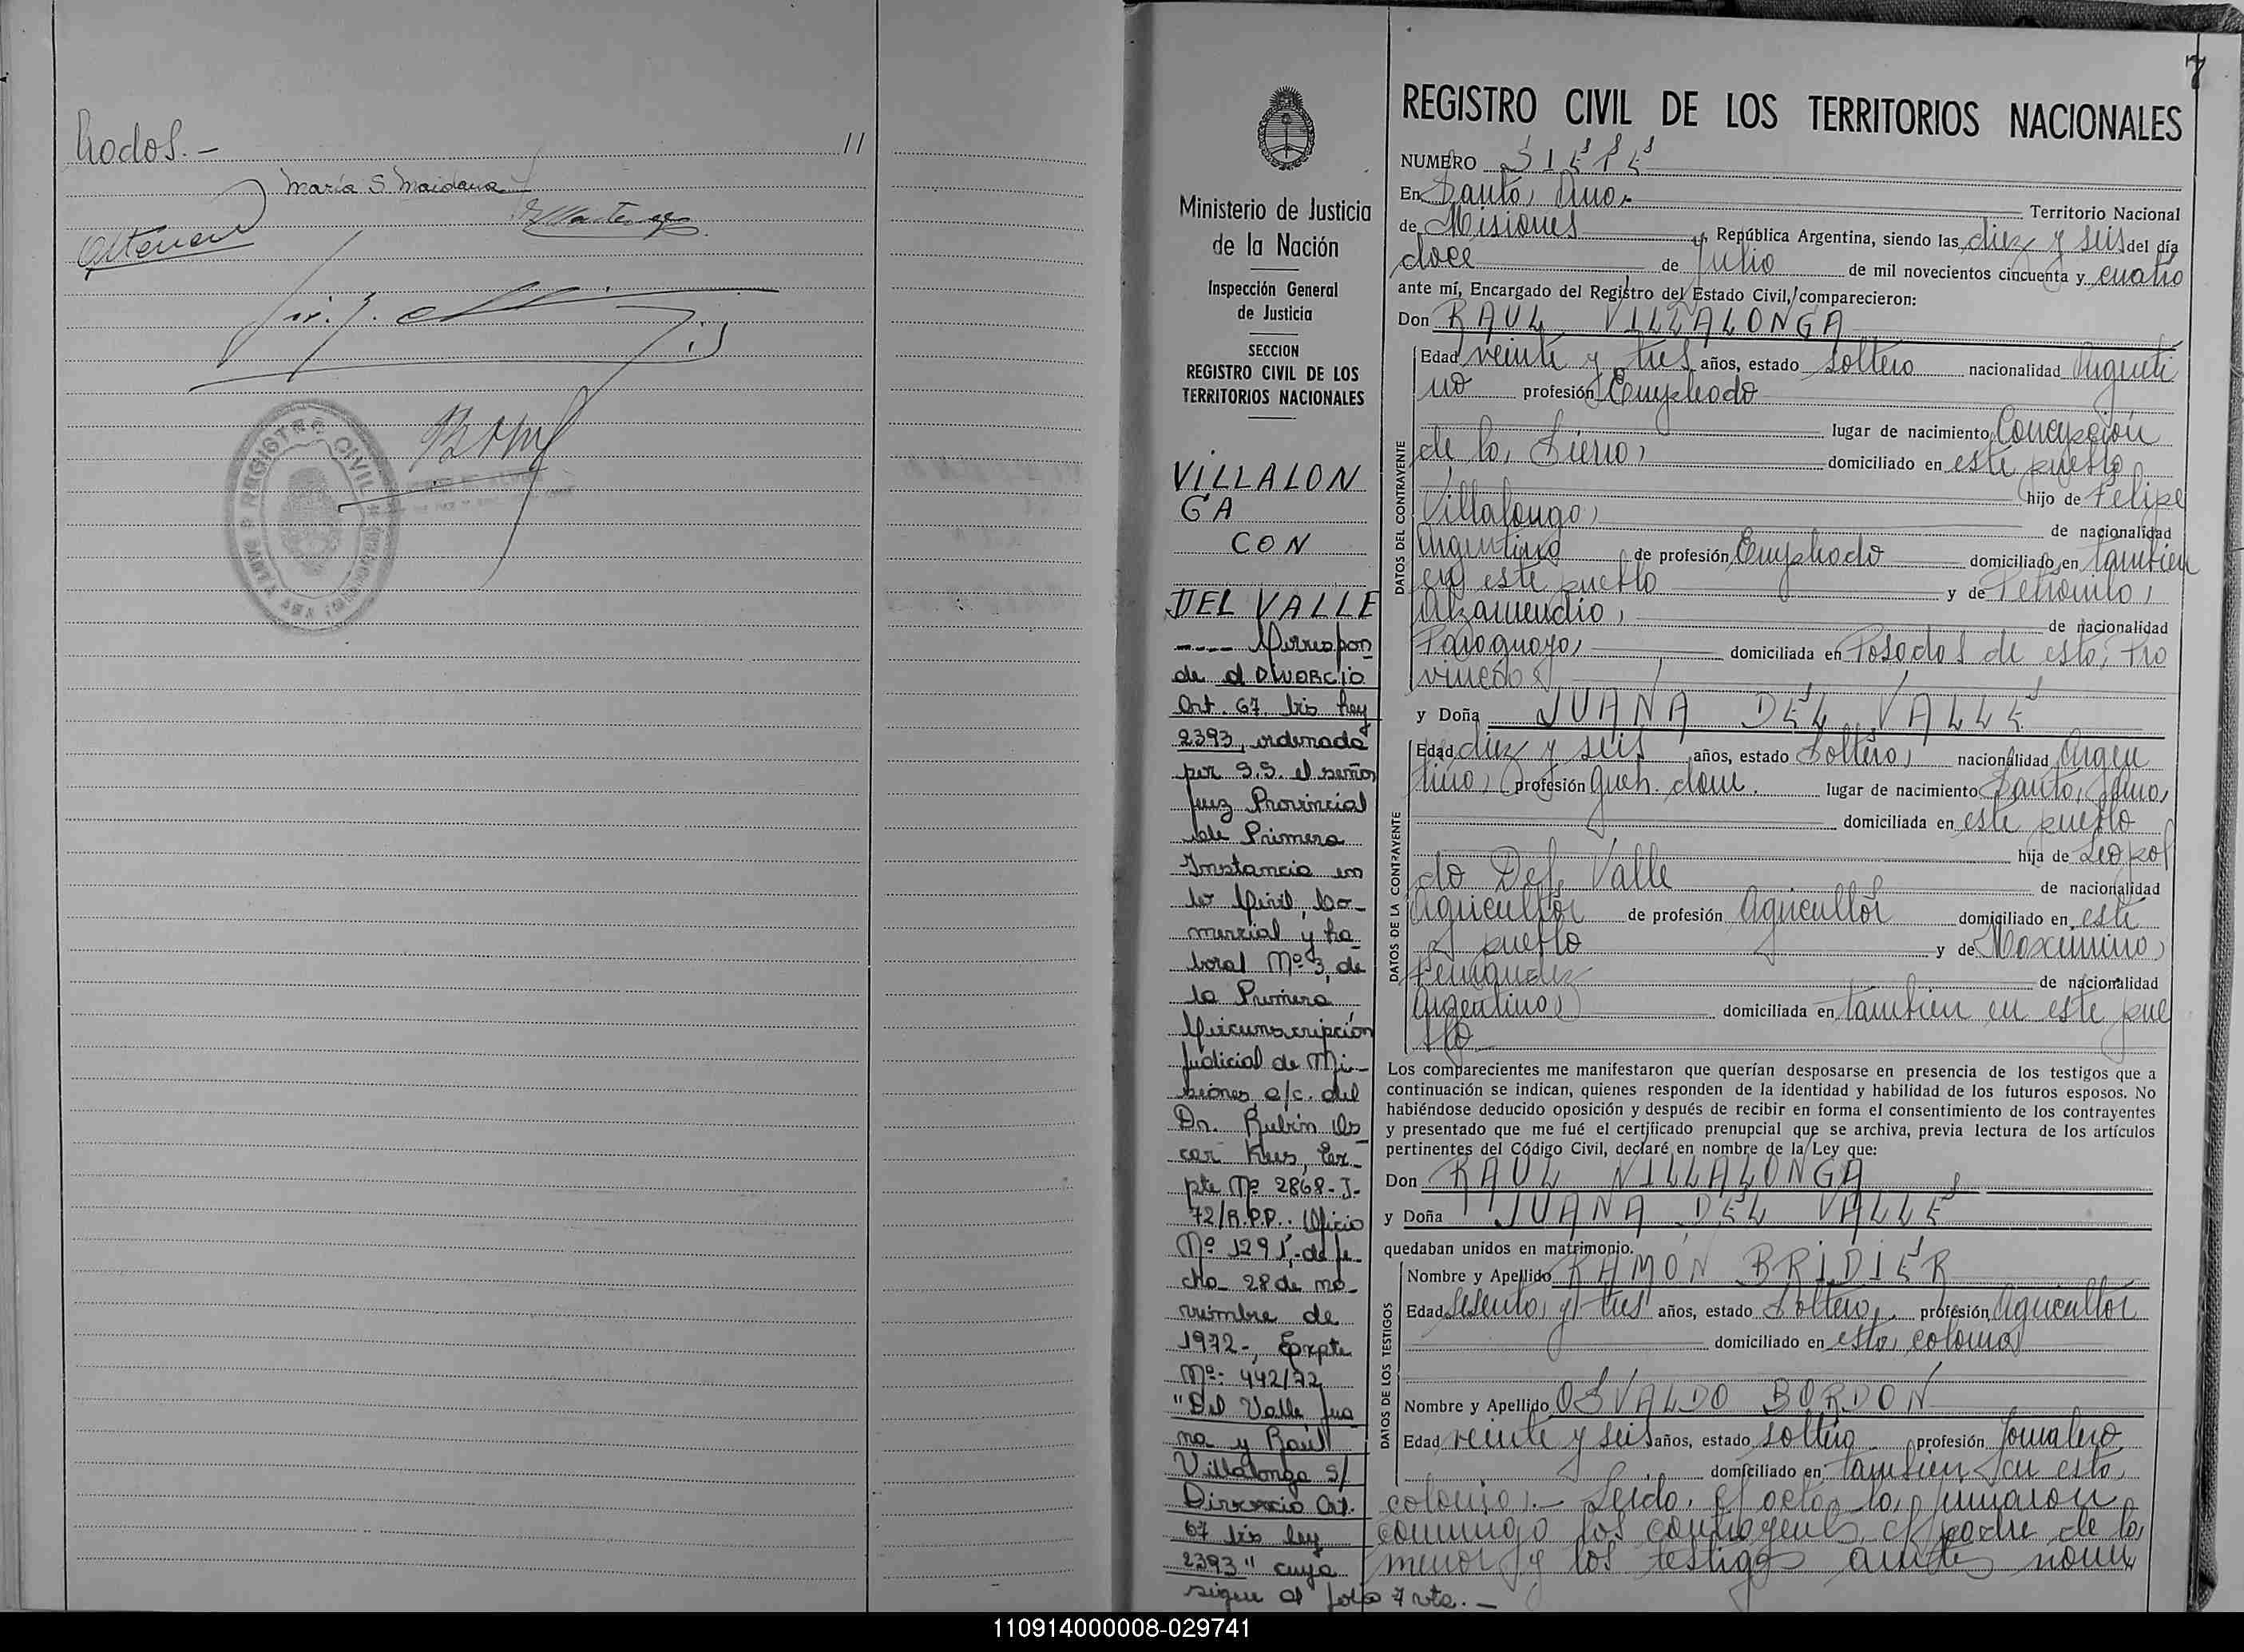 brados.-
11
Maria S. Maidana
REGISTRO CIVIL
7
REGISTRO CIVIL DE LOS TERRITORIOS NACIONALES
NUMERO SIETE
En Santa Ana. Territorio Nacional
de Misiones República Argentina, siendo las diez y seis del día
doce de Julio de mil novecientos cincuenta y cuatro
ante mí, Encargado del Registro del Estado Civil, comparecieron:
Don RAUL VILLALONGA
DATOS DEL CONTRAYENTE
Edad veinte y tres años, estado soltero nacionalidad Argenti
no profesión Empleado
lugar de nacimiento Concepción
de la Sierra, domiciliado en este pueblo
hijo de Felipe
Villalonga, de nacionalidad
Argentina de profesión Empleado domiciliado en tambien
en este pueblo y de Petronila,
Alzamendia, de nacionalidad
Paraguaya, domiciliada en Posadas de esta, Pro
vincia
y Doña JUANA DEL VALLE
DATOS DE LA CONTRAYENTE
Edad diez y seis años, estado Soltera, nacionalidad Argen
tina, profesión Queh. dom. lugar de nacimiento Santa, Ana,
domiciliada en este pueblo
hija de Leopol
do Del Valle de nacionalidad
Agricultor de profesión Agricultor domiciliado en este
pueblo y de Maximina,
de nacionalidad
Argentina, domiciliada en tambien en este pue
blo
Los comparecientes me manifestaron que querían desposarse en presencia de los testigos que a
continuación se indican, quienes responden de la identidad y habilidad de los futuros esposos. No
habiéndose deducido oposición y después de recibir en forma el consentimiento de los contrayentes
y presentado que me fué el certificado prenupcial que se archiva, previa lectura de los artículos
pertinentes del Código Civil, declaré en nombre de la Ley que:
Don RAUL VILLALONGA
y Doña JUANA DEL VALLE
quedaban unidos en matrimonio.
DATOS DE LOS TESTIGOS
Nombre y Apellido RAMON BRIDIER
Edad Sesenta, y tres años, estado Soltero, profesión Agricultor
domiciliado en esta, colonia
Nombre y Apellido OSVALDO BORDON
Edad veinte y seis años, estado soltero profesión Jornalero
domiciliado en tambien en esta,
colonia,.- Leida, el acta, la, firmaron
conmigo los contrayentes el padre de la,
menor y los testigos antes nom
Ministerio de Justicia
de la Nación
Inspección General
de Justicia
SECCION
REGISTRO CIVIL DE LOS
TERRITORIOS NACIONALES
VILLALON
GA
CON
DEL VALLE
---- Correspon
de al DIVORCIO
Art. 67 bis ley
2393, ordenada
por S.S. el señor
Juez Provincial
de Primera
Instancia en
lo Civil, Co-
mercial y La
boral Nº 3, de
la Primera
Circunscripción
Judicial de Mi-
siones a/c. del
Dr. Rubén Os
car Kees, Ex-
pte Nº 2868-J-
72/R.P.P.. Oficio
Nº 1291,-de fe
cha 28 de no
viembre de
1972-, Expte
Nº- 442/72
"Del Valle Jua
na y Raúl
Villalonga S/
Divorcio Art.
67 bis ley
2393" cuya
sigue al folio 7 vta.-
110914000008-029741